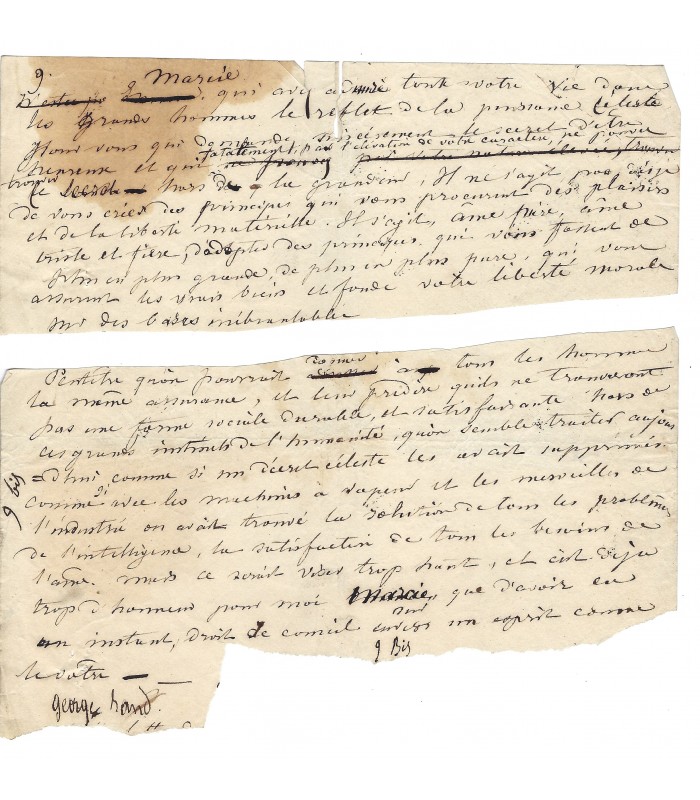 9.
Marcie
qui avez admiré toute votre vie dans
les Grands hommes le reflet de la puissance céleste
Pour vous qui demande sincèrement le secret d'être
heureuse et qui fatalement, par l'élévation de votre caractère, ne pouvez
trouver
le secret hors de la grandeur, Il ne s'agit pas déjà
de vous créer des principes qui vous procurent des plaisirs
et de la liberté matérielle. Il s'agit, ame fière, ame
triste et fière, d'adopter des principes qui vous fassent de
plus en plus grande, de plus en plus pure, qui vous
assurent les vrais biens et fonde votre liberté morale
sur des bases inébranlables
Peutêtre qu'on pourrait donner à tous les hommes
la même assurance, et leur prédire qu'ils ne trouveront
pas une forme sociale durable, et satisfaisante hors de
ces grands instincts de l'humanité, qu'on semble traiter aujour
=d'hui comme si un décret céleste les avait supprimés
comme si avec les machines à vapeur et les merveilles de
l'industrie on avait trouvé la solution de tous les problèmes
de l'intelligence, la satisfaction de tous les besoins de
l'ame. mais ce serait viser trop haut, et c'est déjà
trop d'honneur pour moi Marcie, que d'avoir eu
un instant, droit de conseil sur un esprit comme
le vôtre —
9 bis
9 Bis
George Sand